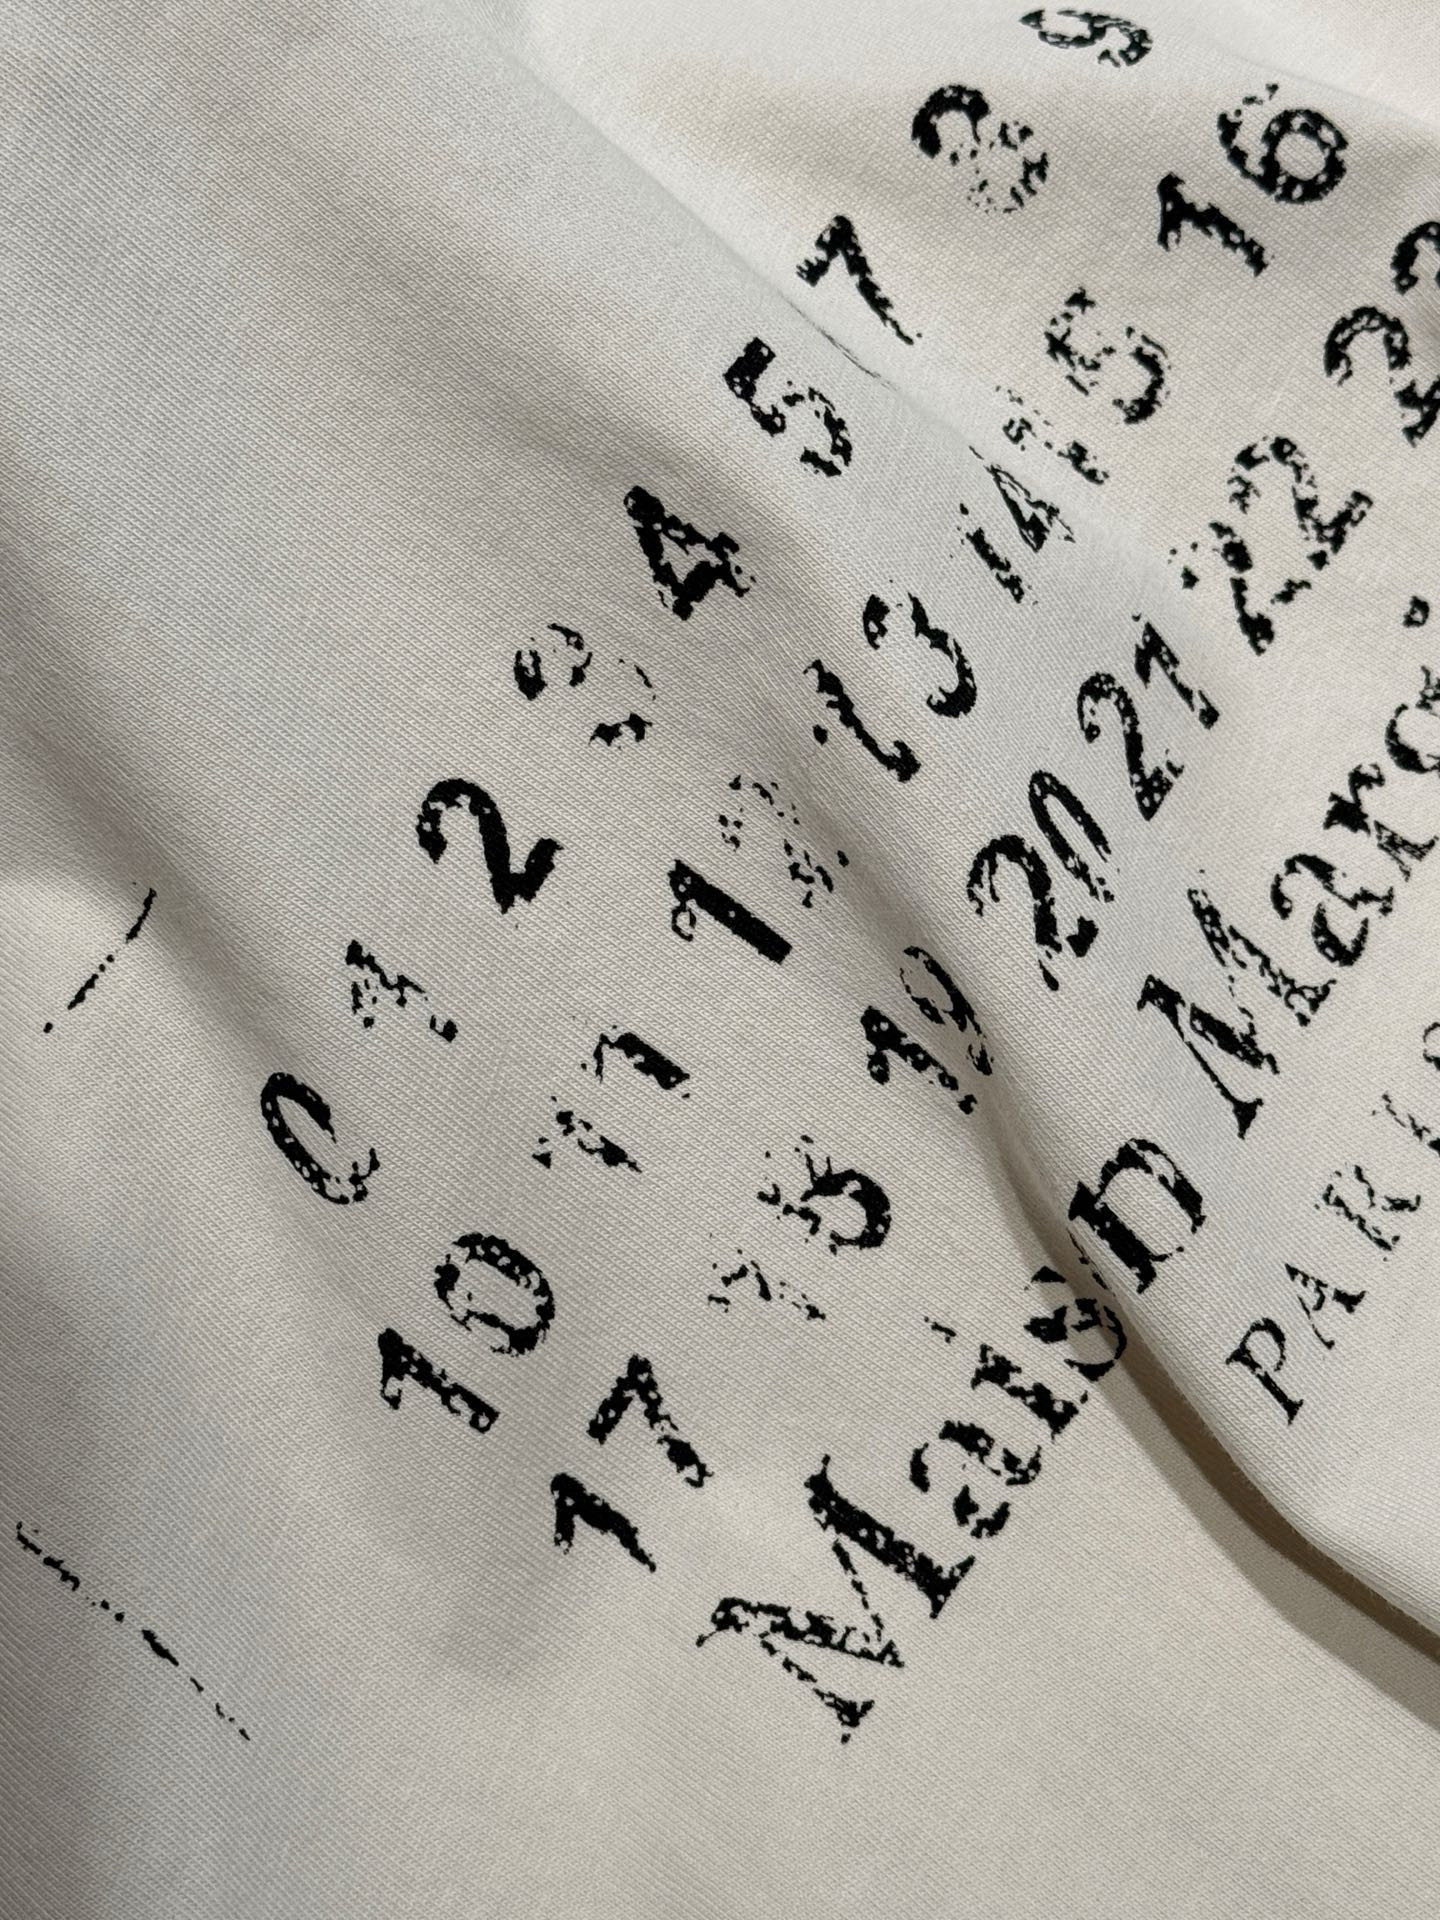 0 1 2 3 4 5 7 8 9
10 11 12 13 14 15 16
17 18 19 20 21 22 23
Maison Mar
PARI